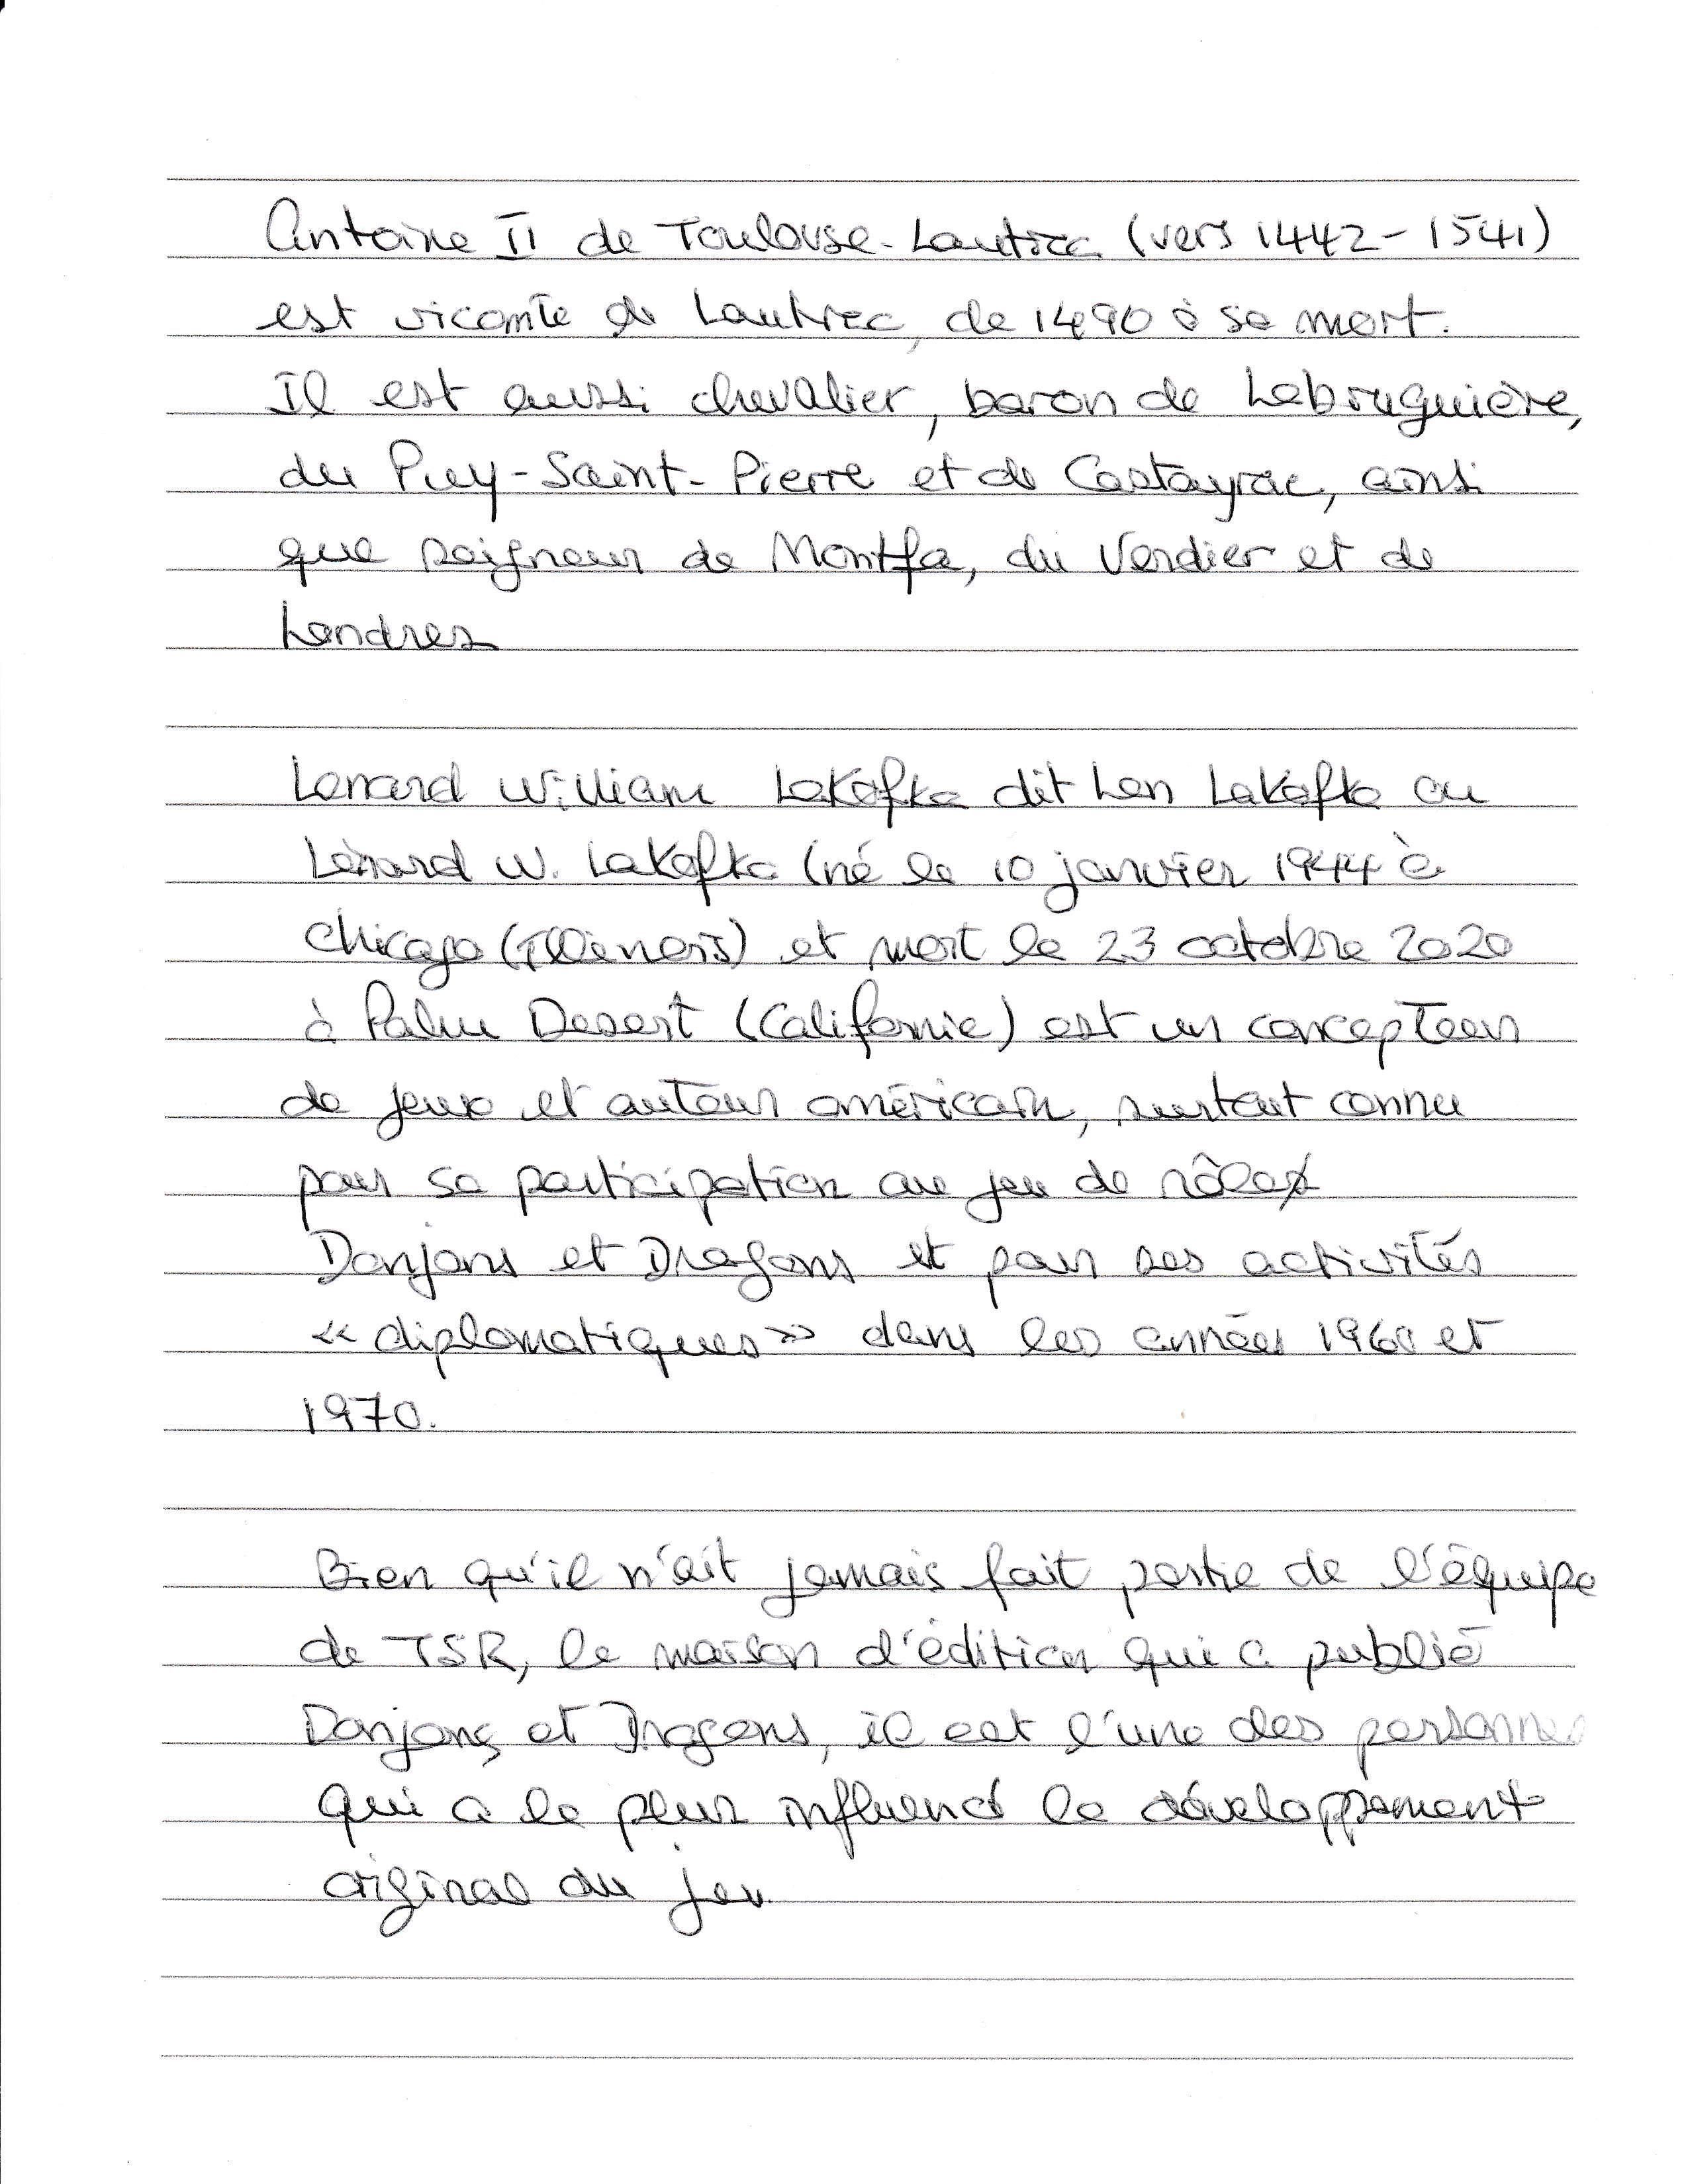 Antoine II de Toulouse-Lautrec (vers 1442-1541)
est vicomte de Lautrec, de 1490 à sa mort.
Il est aussi chevalier, baron de Labruguière,
du Puy-Saint-Pierre et de Castayrac, ainsi
que seigneur de Montfa, du Verdier et de
Landres
Lenard William Lakofka dit Len Lakofka ou
Lenard W. Lakofka (né le 10 janvier 1944 à
Chicago (Illinois) et mort le 23 octobre 2020
à Palm Desert (Californie) est un concepteur
de jeux et auteur américain, surtout connu
pour sa participation au jeu de rôle
Donjons et Dragons et pour ses activités
« diplomatiques » dans les années 1960 et
1970.
Bien qu'il n'ait jamais fait partie de l'équipe
de TSR, la maison d'édition qui a publié
Donjons et Dragons, il est l'une des personnes
qui a le plus influencé le développement
original du jeu.